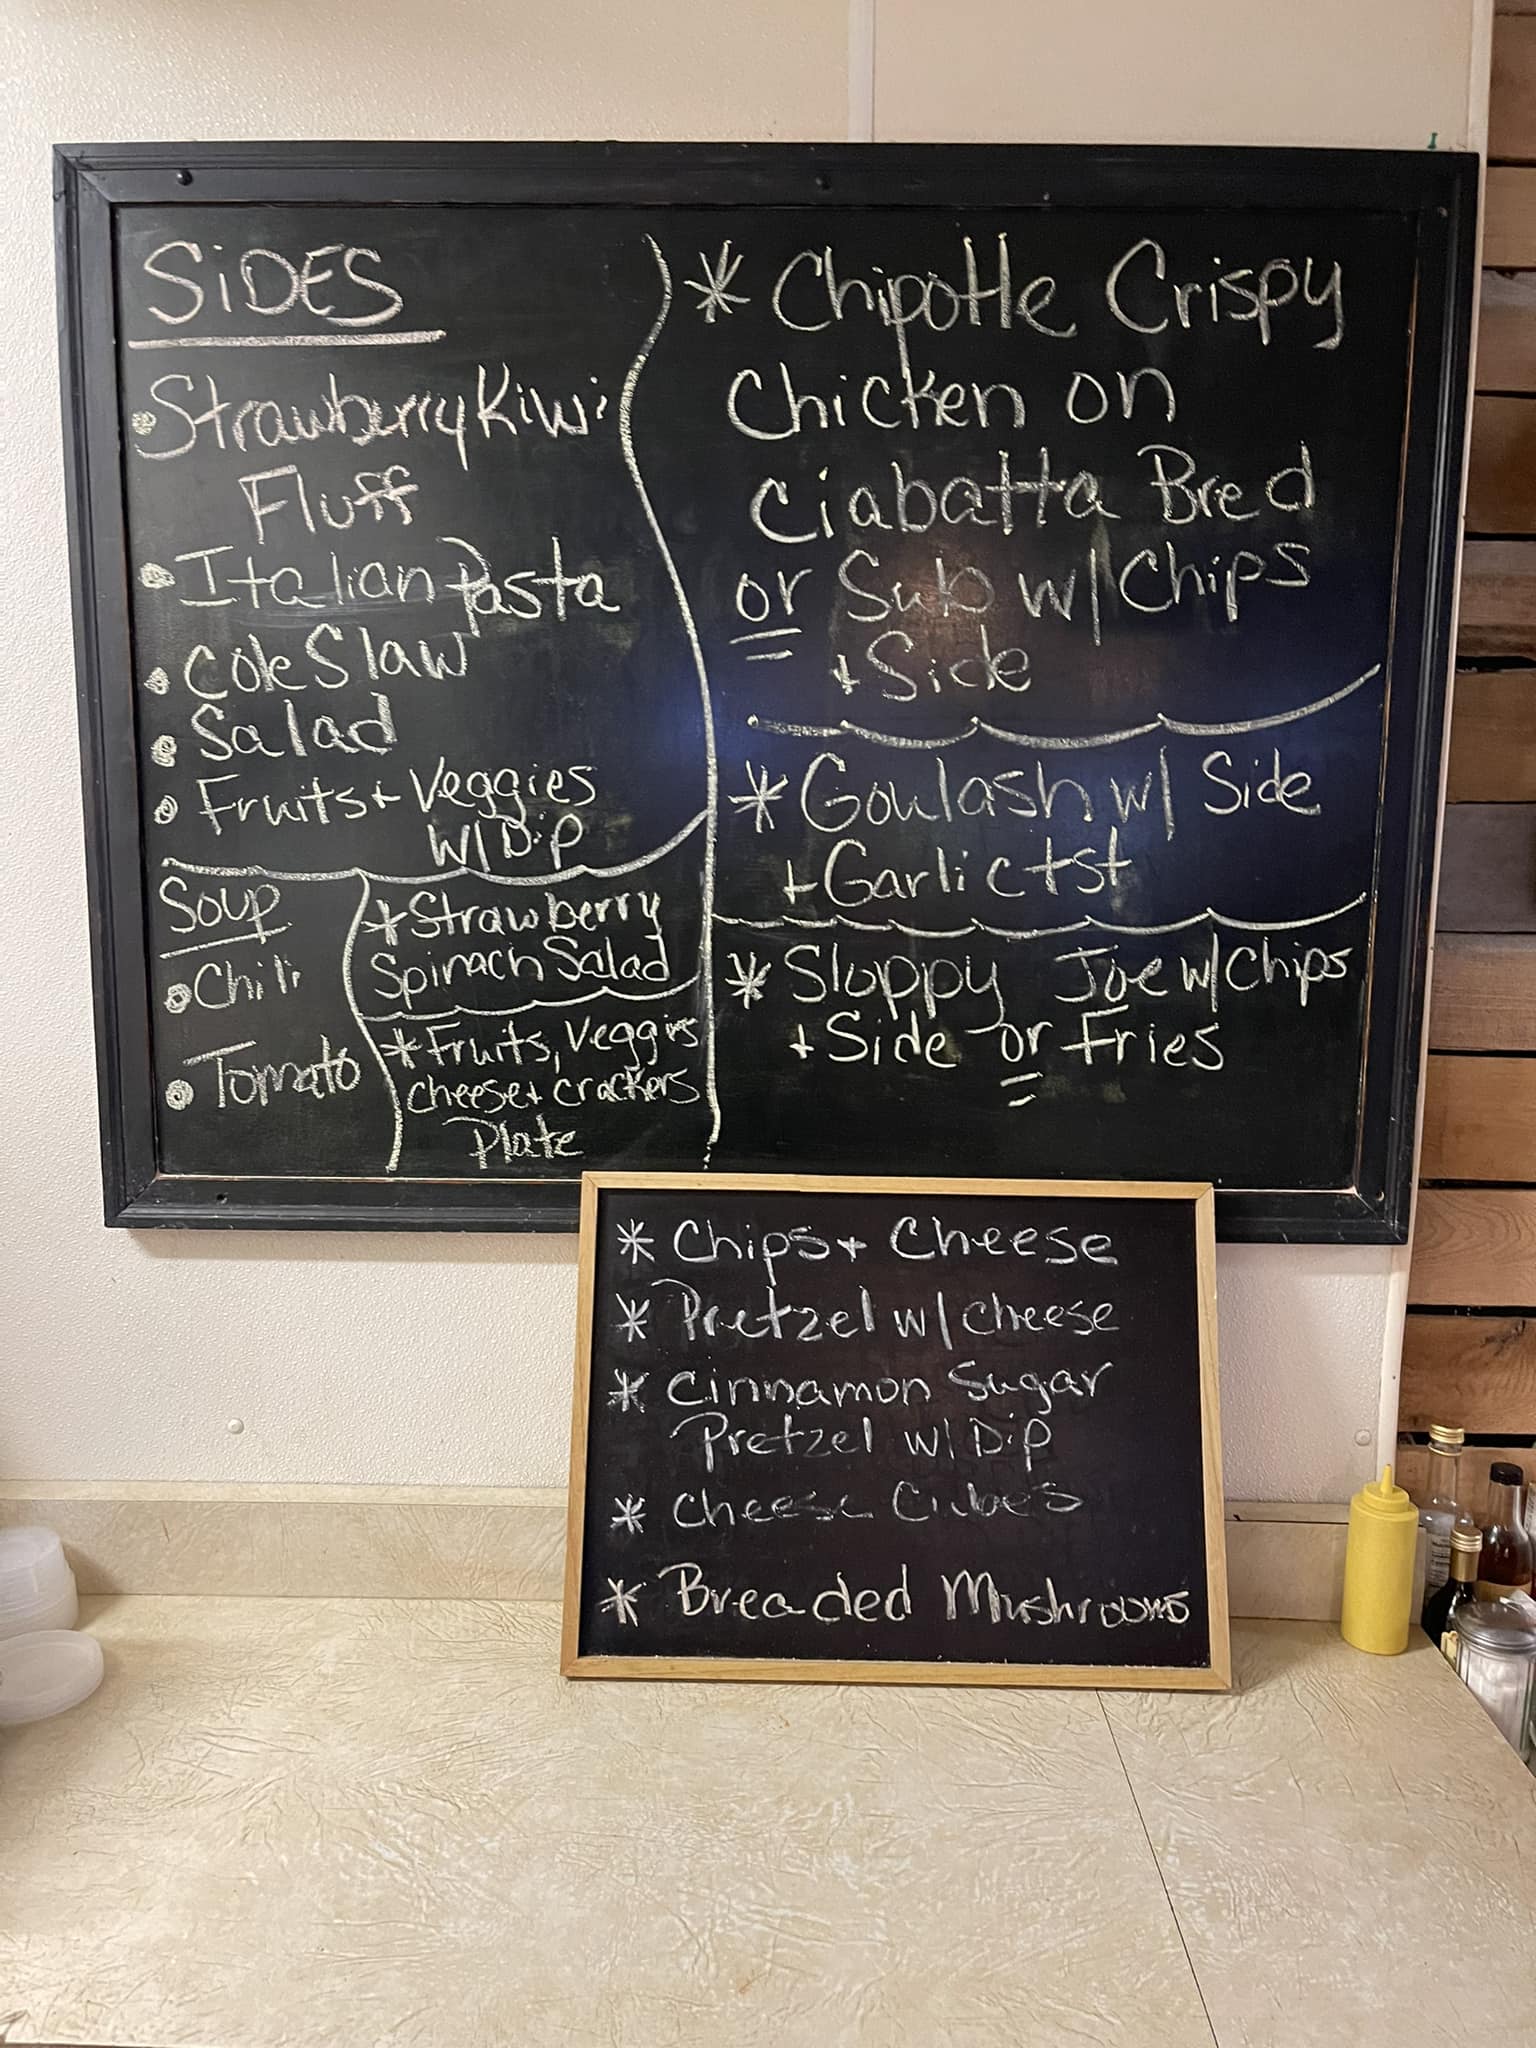 SiDES
• Strawberry Kiwi
Fluff
• Italian Pasta
• Cole Slaw
• Salad
• Fruits + Veggies
W/ Dip
Soup
• Chili
• Tomato
* Strawberry
Spinach Salad
* Fruits, Veggies
Cheese + Crackers
Plate
* Chipotle Crispy
Chicken on
Ciabatta Bred
or Sub w/ Chips
+ Side
* Goulash w/ Side
+ Garlic tst
* Sloppy Joe w/ Chips
+ Side or Fries
* Chips + Cheese
* Pretzel w/ cheese
* Cinnamon Sugar
Pretzel w/ Dip
* Cheese Cubes
* Breaded Mushrooms